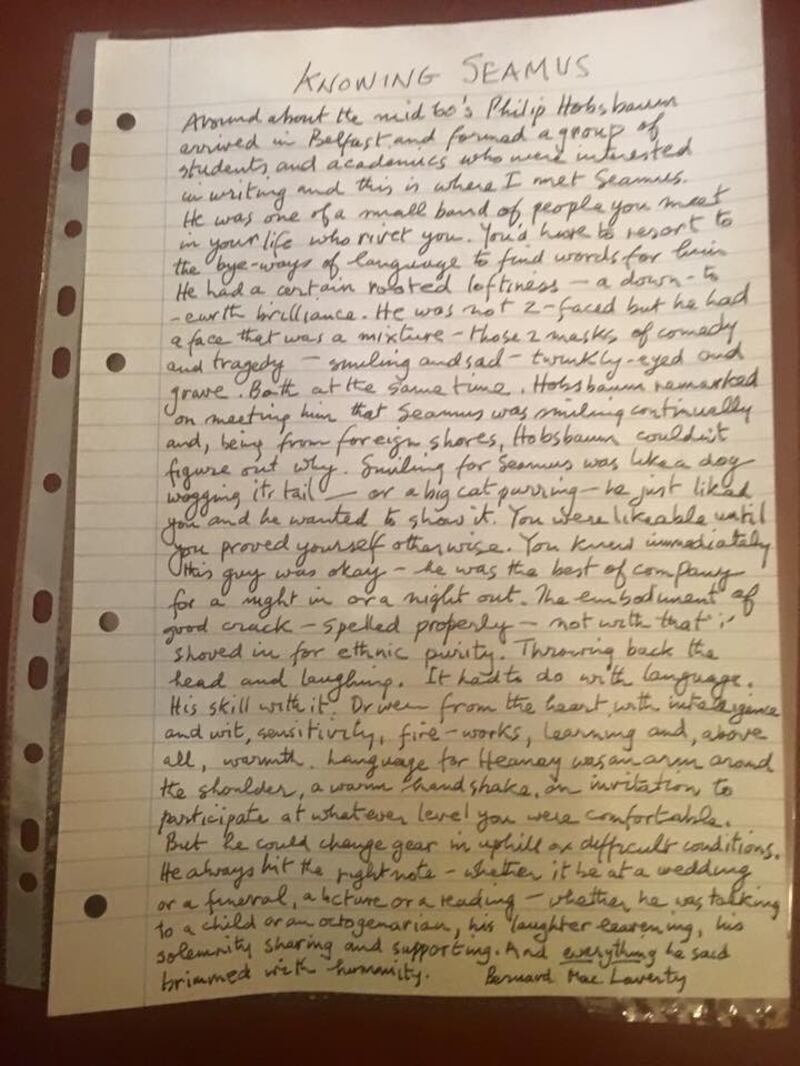 KNOWING SEAMUS
Around about the mid 60's Philip Hobsbaum
arrived in Belfast and formed a group of
students and academics who were interested
in writing and this is where I met Seamus.
He was one of a small band of people you meet
in your life who rivet you. You'd have to resort to
the bye-ways of language to find words for him
He had a certain rooted loftiness – a down-to
-earth brilliance. He was not 2-faced but he had
a face that was a mixture – those 2 masks of comedy
and tragedy – smiling and sad – twinkly-eyed and
grave. Both at the same time. Hobsbaum remarked
on meeting him that Seamus was smiling continually
and, being from foreign shores, Hobsbaum couldn't
figure out why. Smiling for Seamus was like a dog
wagging its tail – or a big cat purring – he just liked
you and he wanted to show it. You were likeable until
you proved yourself otherwise. You knew immediately
this guy was okay – he was the best of company
for a night in or a night out. The embodiment of
good crack – spelled properly – not with that 'i'
shoved in for ethnic purity. Throwing back the
head and laughing. It had to do with language.
His skill with it. Driven from the heart with intelligence
and wit, sensitivity, fire-works, learning and, above
all, warmth. Language for Heaney was an arm around
the shoulder, a warm handshake, an invitation to
participate at whatever level you were comfortable.
But he could change gear in uphill or difficult conditions.
He always hit the right note – whether it be at a wedding
or a funeral, a lecture or a reading – whether he was talking
to a child or an octogenarian, his laughter leavening, his
solemnity sharing and supporting. And everything he said
brimmed with humanity. Bernard Mac Laverty